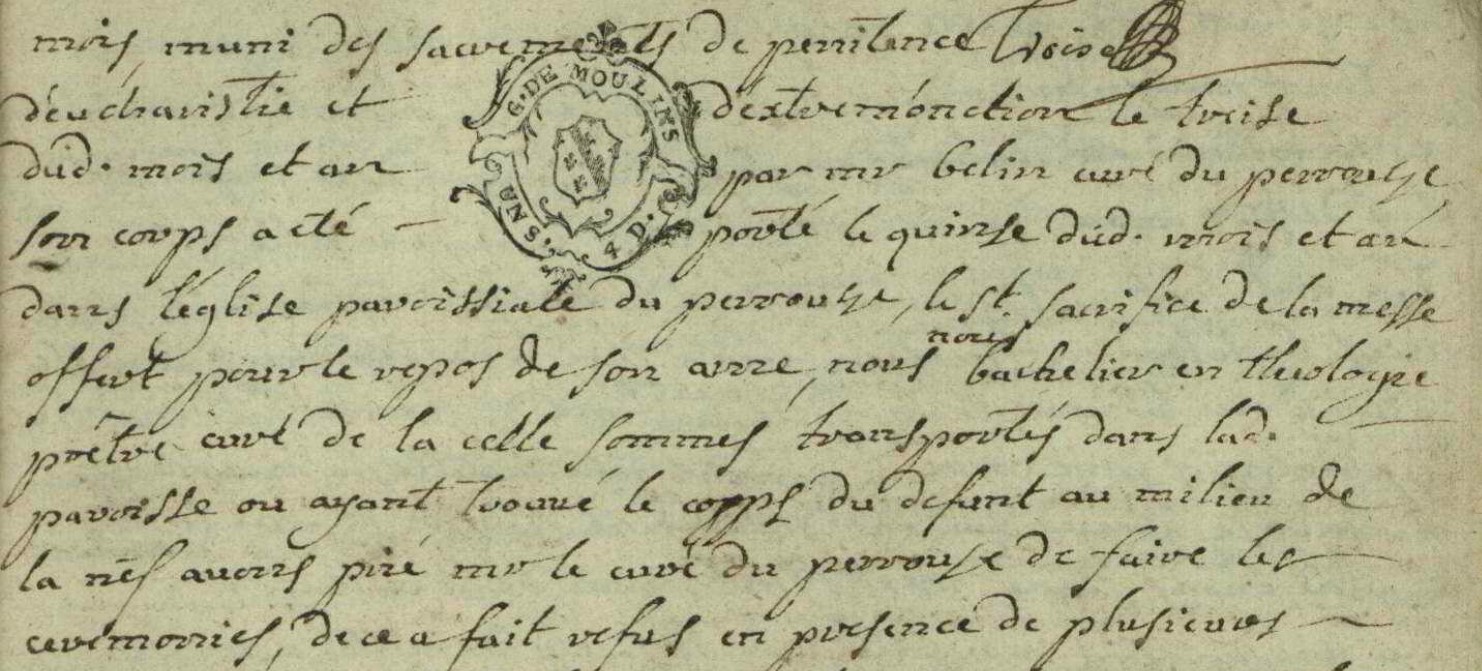 mois, muni des sacrements de penitence Troise
d'eucharistie et d'extremonction le treise
dud. mois et an par mr belin curé du perrouze
son corps a eté - porté le quinse dud. mois et an
dans l'église paroissiale du perrouze, le st. sacrifice de la messe
offert pour le repos de son ame, nous nous bachelier en theologie
prêtre curé de la celle sommes transportés dans lad.
paroisse ou ayant trouvé le corps du defunt au milieu de
la nef avons prié mr le curé du perrouze de faire les
ceremonies, de ce a fait refus en presence de plusieurs -
G. DE MOULINS
4 D. S.NU